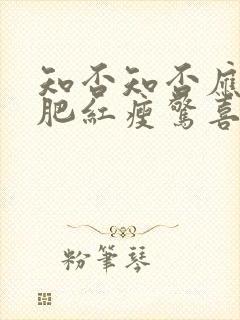 知否知否應
肥紅瘦驚喜
粉筆琴